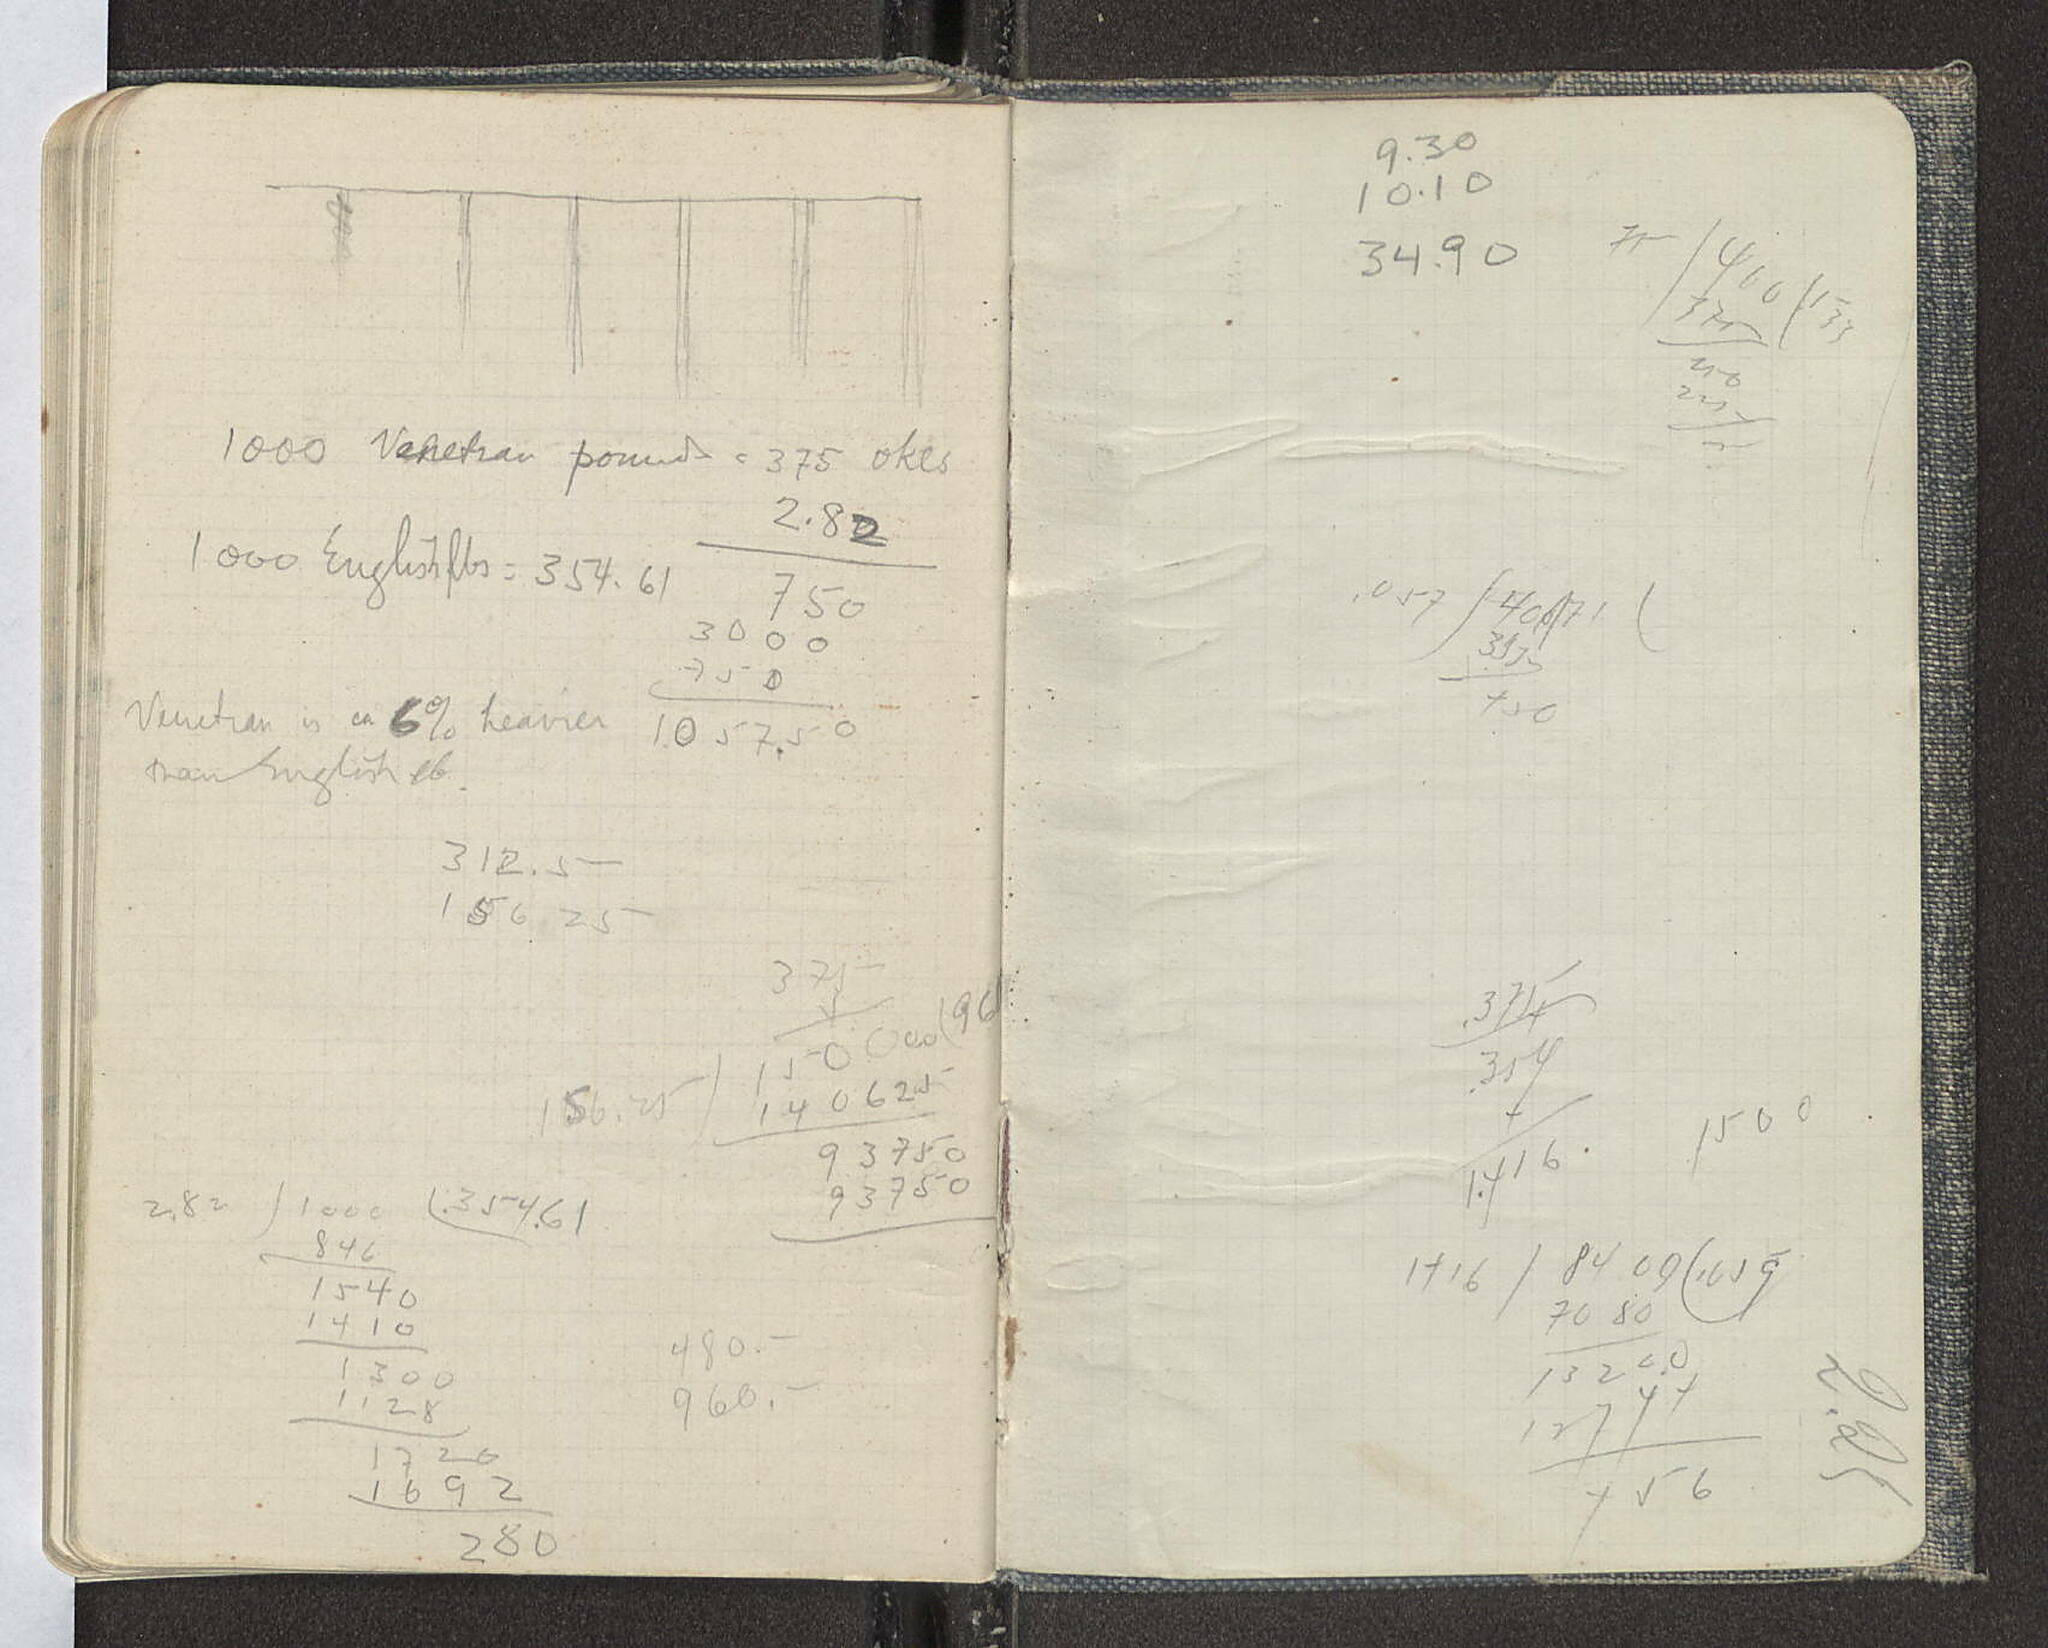 1000 Venetian pounds = 375 okes
2.82
1000 English lbs = 354.61
750
3000
750
Venetian is ca 6% heavier
1057.50
than English lb.
312.5
156.25
375
4
156.25 ) 150000 ( 96
140625
93750
93750
2.82 ) 1000 ( .354.61
846
1540
1410
1300
1128
1720
1692
280
480.-
960.-
9.30
10.10
34.90
75 / 400 ( 533
375
250
225
.057
450
.375
.354
4
1.416
1500
1416 / 8400 ( .059
7080
13200
12744
456